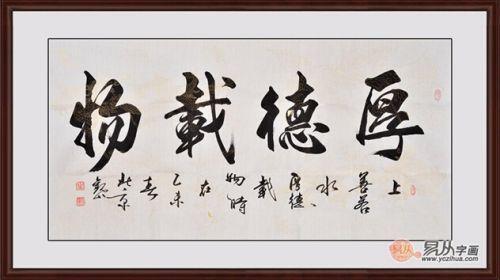 厚德載物
上善若水、厚德載物時在乙未春於京
易从字画
www.yczihua.com